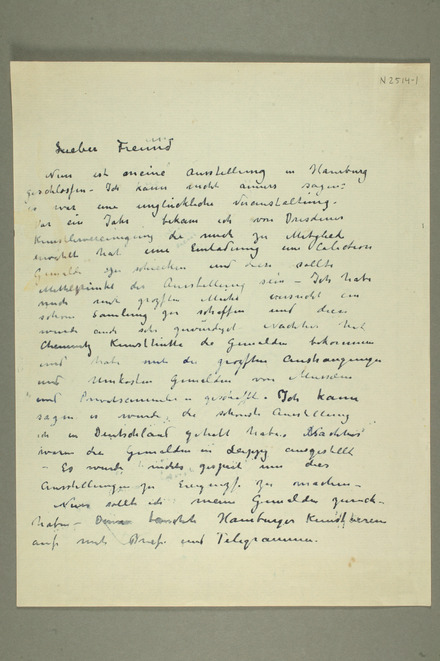 N 2514-1
Lieber Freund
Nun ist meine Ausstellung in Hamburg
geschlossen - Ich kann nicht anders sagen:
es war eine unglückliche Veranstaltung.
Vor ein Jahr bekam ich von Dresdener
Kunstvereinigung die mich zu Mitglied
erwählt hat eine Einladung eine Collection
Gemälde zu schicken und diese sollte
Mittelpunkt der Ausstellung sein - Ich habe
mich mit großten Mühe versucht ein
schöne Samlung zu schaffen und diese
wurde auch sehr gewürdigt - Nachher hat
Chemnitz Kunsthütte die Gemälden bekommen
und habe mit die großten Anstrengungen
und Unkosten Gemälden von Museen
und Privatsammlern geschafft. Ich kann
sagen es wurde die schönste Ausstellung
ich in Deutschland gehabt habe. Nachher
waren die Gemälden in Leipzig ausgestellt
- Es wurde nichts gespart um dies
Ausstellungen zu Ereigniss zu machen -
Nun sollte ich meine Gemälden zurück-
haben - Hamburger Kunstverein
auf mit Briefe und Telegrammen.